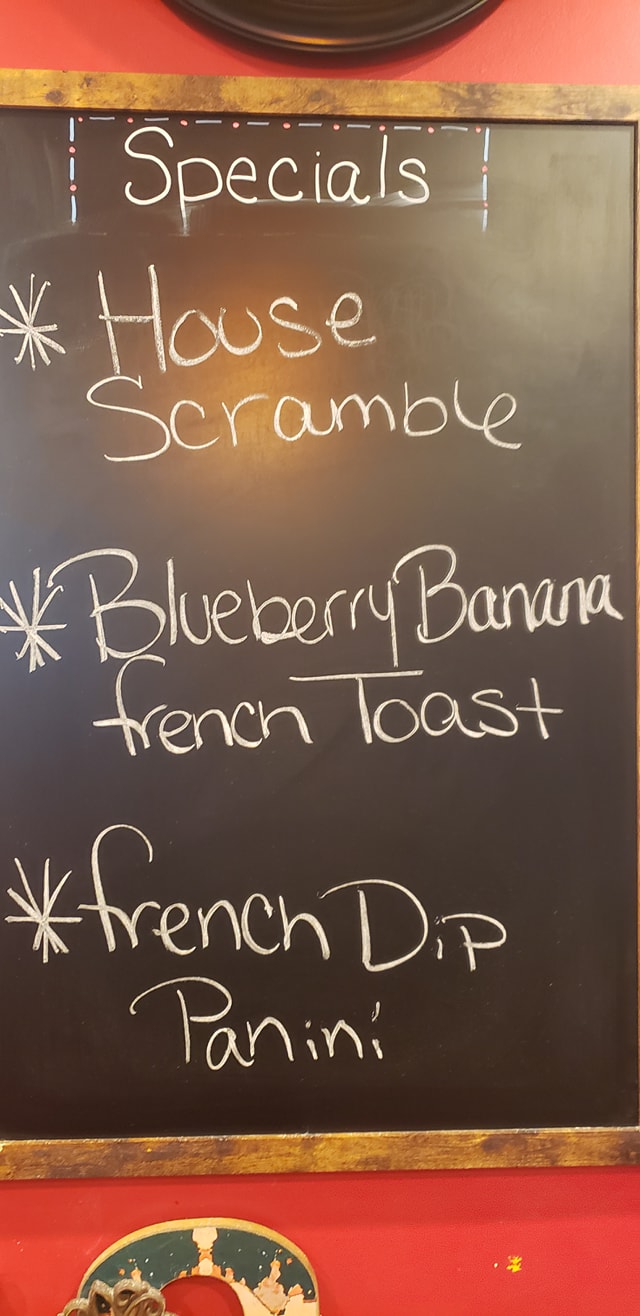 Specials
* House
Scramble
* Blueberry Banana
french Toast
* french Dip
Panini